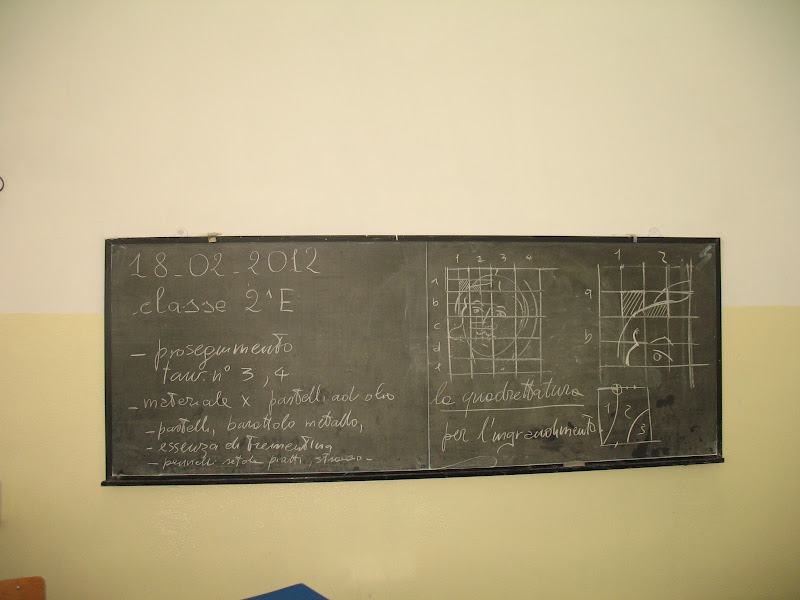 18-02-2012
classe 2ª E
- proseguimento
tav. n° 3, 4
- materiale x pastelli ad olio
- pastelli, barattolo metallo,
- essenza di trementina
- pennelli setola piatti, straccio -
1 2 3 4
a
b
c
d
e
la quadrettatura
per l'ingrandimento
1 2
a
b
1 2 3